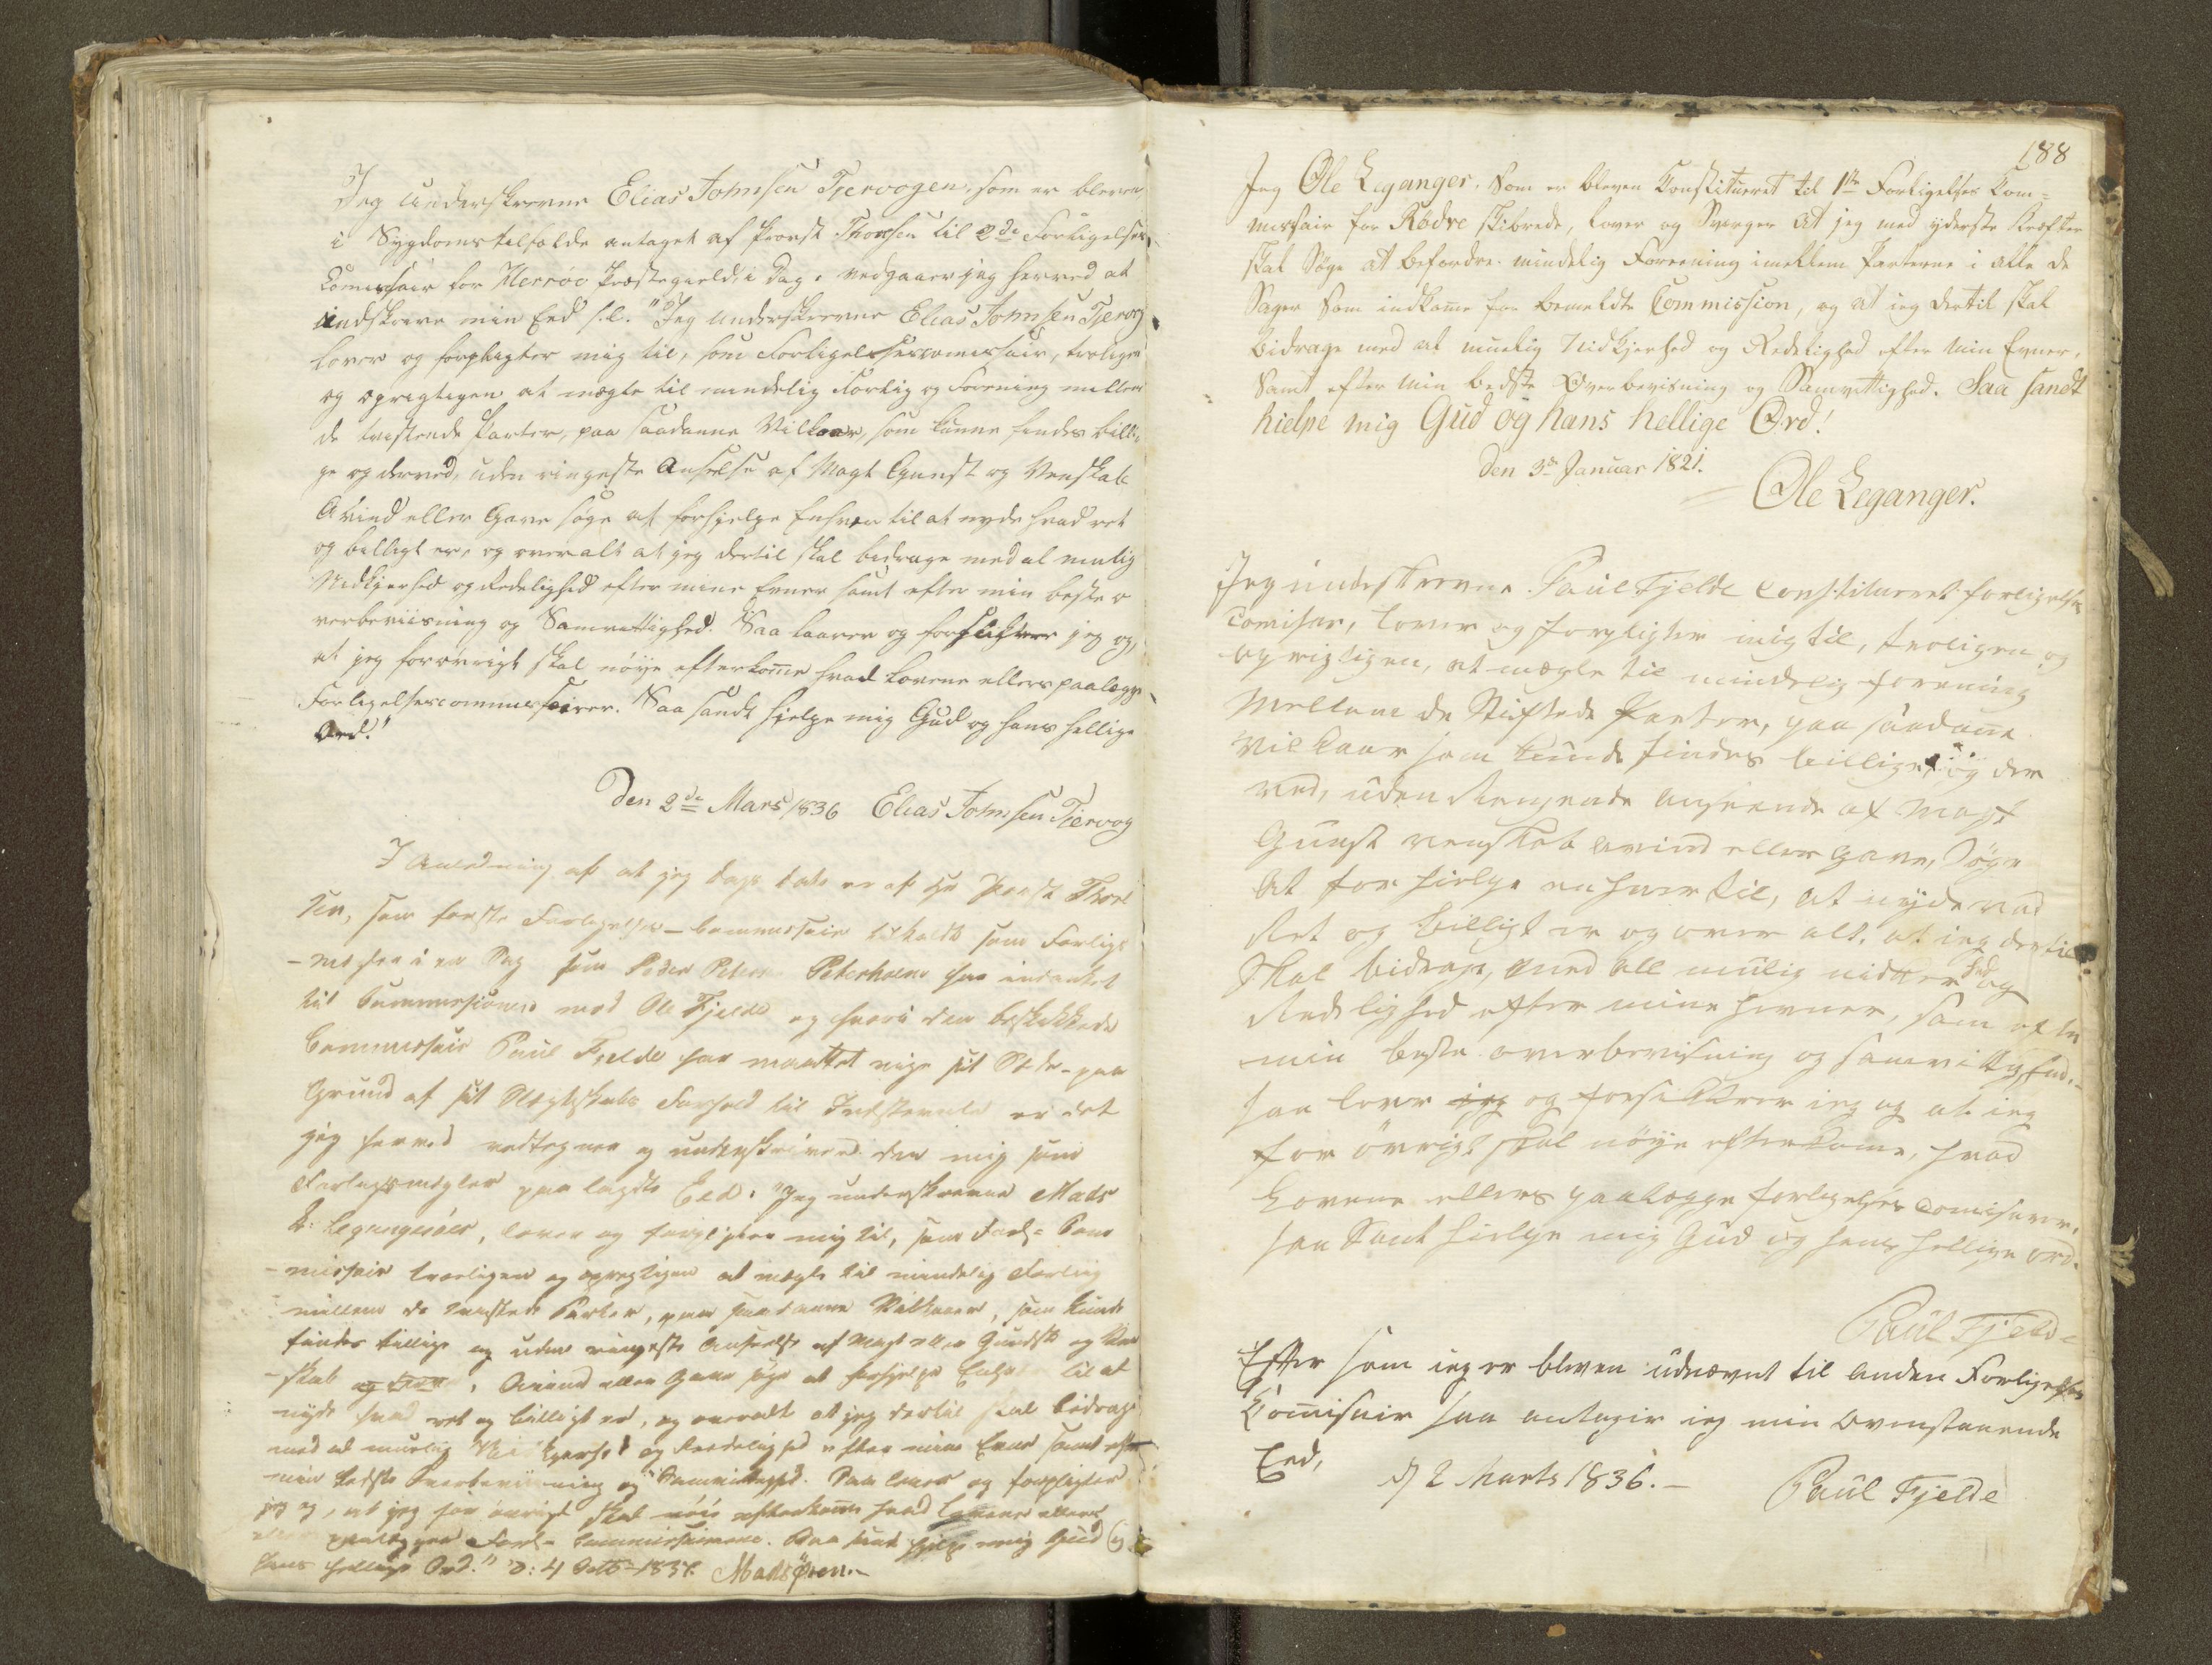 Jeg underskrevne Elias Johnsen Tjervogen, som er bleven
i Sygdomstilfælde antaget af Provst Thoresen til 2de Forligelses
Comissair for Herröe Præstegield, i Dag, vedgaaer jeg herved at
indskrive min Eed s.l. "Jeg underskrevne Elias Johnsen Tjervog
lover og forpligter mig til, som Forligelsescomissair, troligen
og oprigtigen at mægle til mindelig Forlig og Forening mellem
de tvistende Parter, paa saadanne Vilkaar, som kunne findes billi-
ge og derved, uden ringeste Anseelse af Magt Gunst og Venskab
Avind eller Gave søge at forhjelpe Enhver til at nyde hvad ret
og billigt er, og overalt at jeg dertil skal bidrage med al mulig
Nidkjerhed og Redelighed efter mine Evner samt efter min beste o
verbeviisning og Samvittighed. Saa laaver og forsikkrer jeg og,
at jeg forövrigt skal nöye efterkom̅e hvad Lovene ellers paalægge
Forligelsescommissairer. Saa sandt hjelpe mig Gud og hans hellige
Ord."
Den 2de Mars 1836 Elias Johnsen Tjervog
I Anledning af at jeg Dags Dato er af Hr Provst Thore
sen, som første Forligelses-Commissair tilkaldt som Forligs
i en Sag som Peder Peterholm har indanket
til Commissionen mod Ole Fjelde og hvori den beskikkede
Commissair Paul Fjelde har maattet vige sit Sæde paa
Grund af sit Slegtskabs Forhold til Indstevnte er det
jeg herved vedtegner og underskriver den mig som
Forligsmægler paa lagde Eed. "Jeg underskrevne Mads
lover og forpligter mig til, som Forl- Com
-missair troeligen og oprigtigen at mægle til mindelig Forlig
mellem de tvistende Parter, paa saadanne Vilkaar, som kunde
findes billige og uden ringeste Anseelse af Magt eller Gundst og Ven
-skab, Avind eller Gave søge at forhjelpe Enhver til at
nyde hvad ret og billigt er, og overalt at jeg dertil skal bidrage
med al muelig Nidkjerhed og Reedelighed efter mine Evner samt efter
min bedste Overbeviisning og Samvittighed. Saa lover og forpligter
jeg og, at jeg for övrigt skal nöie efterkomme hvad Lovene ellers
paalægger Forl- Commissairerne. Saa sandt hjelpe mig Gud og
hans hellige Ord." D: 4 Octb 183 Mads Ören.
188
Jeg Ole Leganger, Som er bleven Constitueret til 1ste Forligelses Com=
missair for Rödve Skibrede, lover og Sverger at jeg med yderste Kræfter
skal Söge at befordre mindelig Foreening imellem Parterne i alle de
Sager Som indkom̅e for bemeldte Commission, og at jeg dertil skal
bidrage med al muelig Nidkjerhed og Redelighed efter min Evner,
Samt efter min bedste Overbevisning og Samvittighed. Saa sandt
hielpe mig Gud og hans hellige Ord!
Den 3de Januar 1821.
Ole Leganger.
Jeg underskrevne Paul Fjelde Constitueret forligelses
Comisær, lover og forpligter mig til, troligen og
oprigtigen, at mægle til mindelig forening
Mellem de Parter, paa saadane
Vilkaar som kunde findes billige og der
ved, uden anseende af Magt
Gunst venskab avind eller gave, Söge
at for hielpe en hver til, at nyde vad
Ret og billigt er og over alt, at jeg dertil
Skal bidrage, med all mulig nidkerhed og
Redelighed efter mine Hevner, sam efter
min beste overbevisning og samvittighed.
saa lover jeg og forsikkrer jeg og at jeg
for övrigt skal nöye efterkome, hvad
Lovene ellers paalægge forligelses Comisærer.
saa Sant hielpe mig Gud og hans hellige ord.
Paul Fjelde
Efter som jeg er bleven udnævnt til anden Forligelses
Com̅isair saa antager jeg min ovenstaaende
Eed,
D 2 Marts 1836.- Paul Fjelde